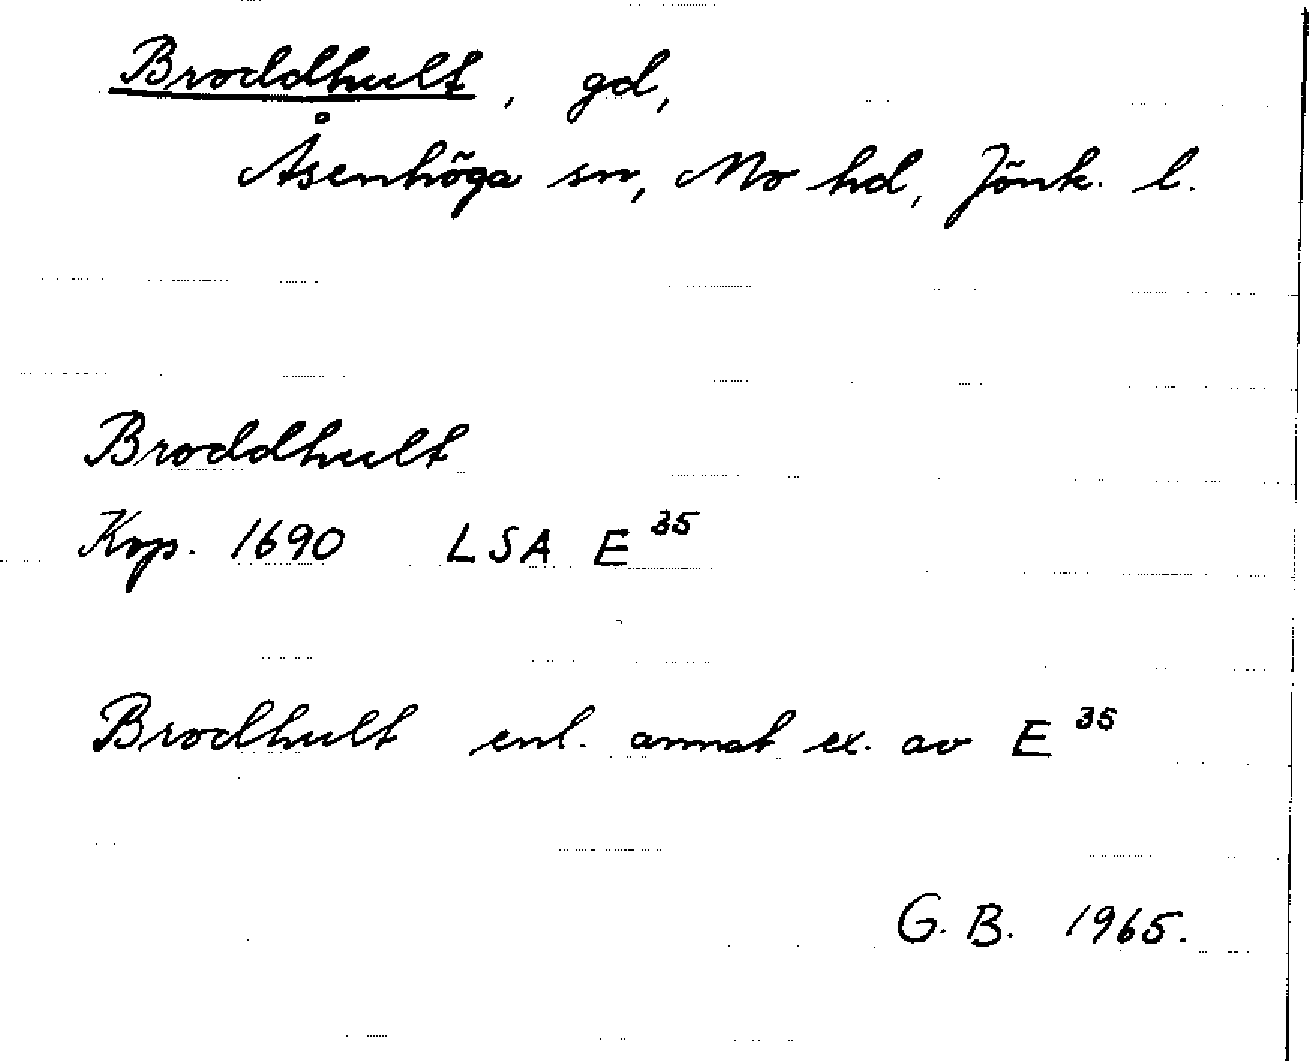 Broddhult, gd,
Åsenhöga sn, Mo hd, Jönk. l.
Broddhult
Kop. 1690 LSA E 35
Brodhult enl. annat ex. av E 35
G. B. 1965.